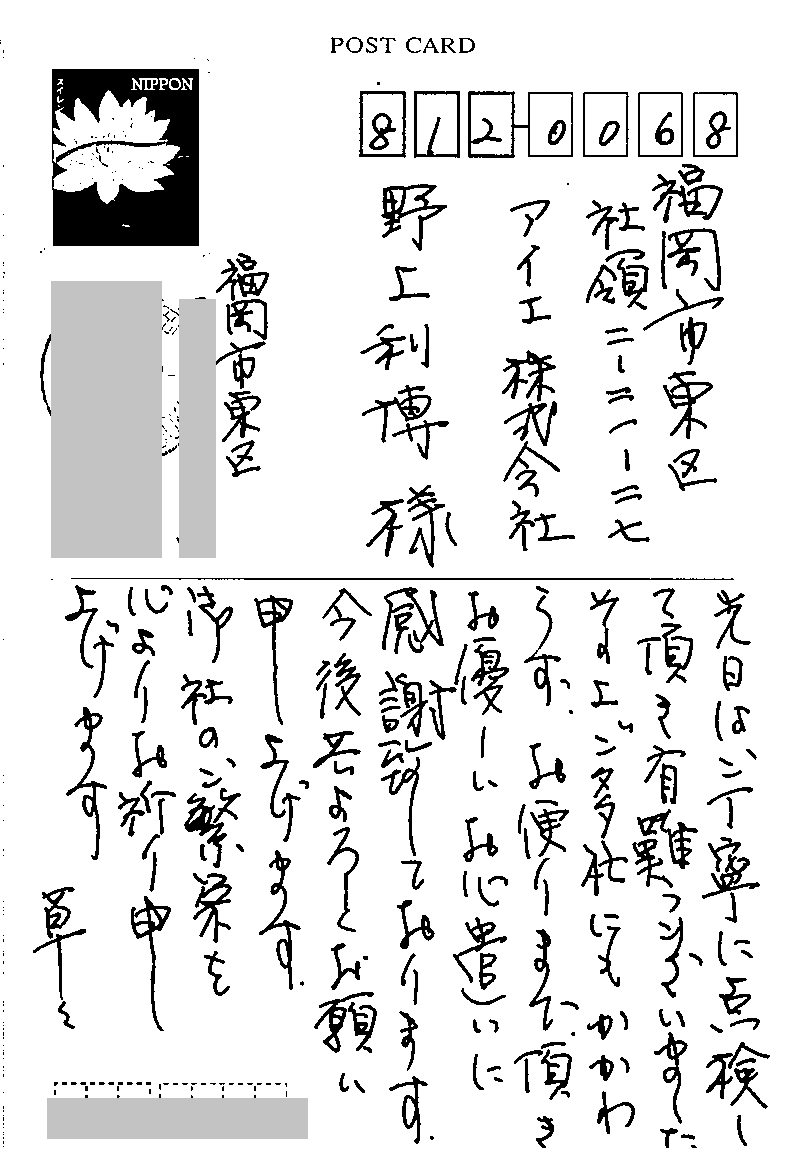 POST CARD
NIPPON
スイレン
812-0068
福岡市東区
社領二ー二一ー二七
アイエ株式会社
野上利博様
福岡市東区
先日はご丁寧に点検し
て頂き有難うございました
その上ご多忙にもかかわ
らず、お便りまで、頂き
お優しいお心遣いに
感謝致しております。
今後共よろしくお願い
申し上げます。
御社のご繁栄を
心よりお祈り申し
上げます
草々